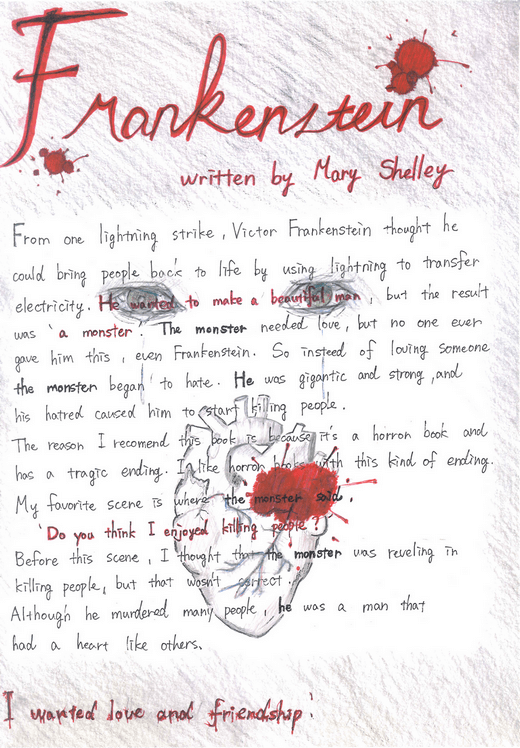 Frankenstein
written by Mary Shelley
From one lightning strike, Victor Frankenstein thought he
could bring people back to life by using lightning to transfer
electricity. He wanted to make a beautiful man, but the result
was 'a monster'. The monster needed love, but no one ever
gave him this, even Frankenstein. So insteed of loving someone
the monster began to hate. He was gigantic and strong, and
his hatred caused him to start killing people.
The reason I recomend this book is because it's a horron book and
has a tragic ending. I like horror books with this kind of ending.
My favorite scene is where the monster said,
'Do you think I enjoyed killing people?'
Before this scene, I thought that the monster was reveling in
killing people, but that wasn't correct.
Although he murdered many people, he was a man that
had a heart like others.
I wanted love and friendship!